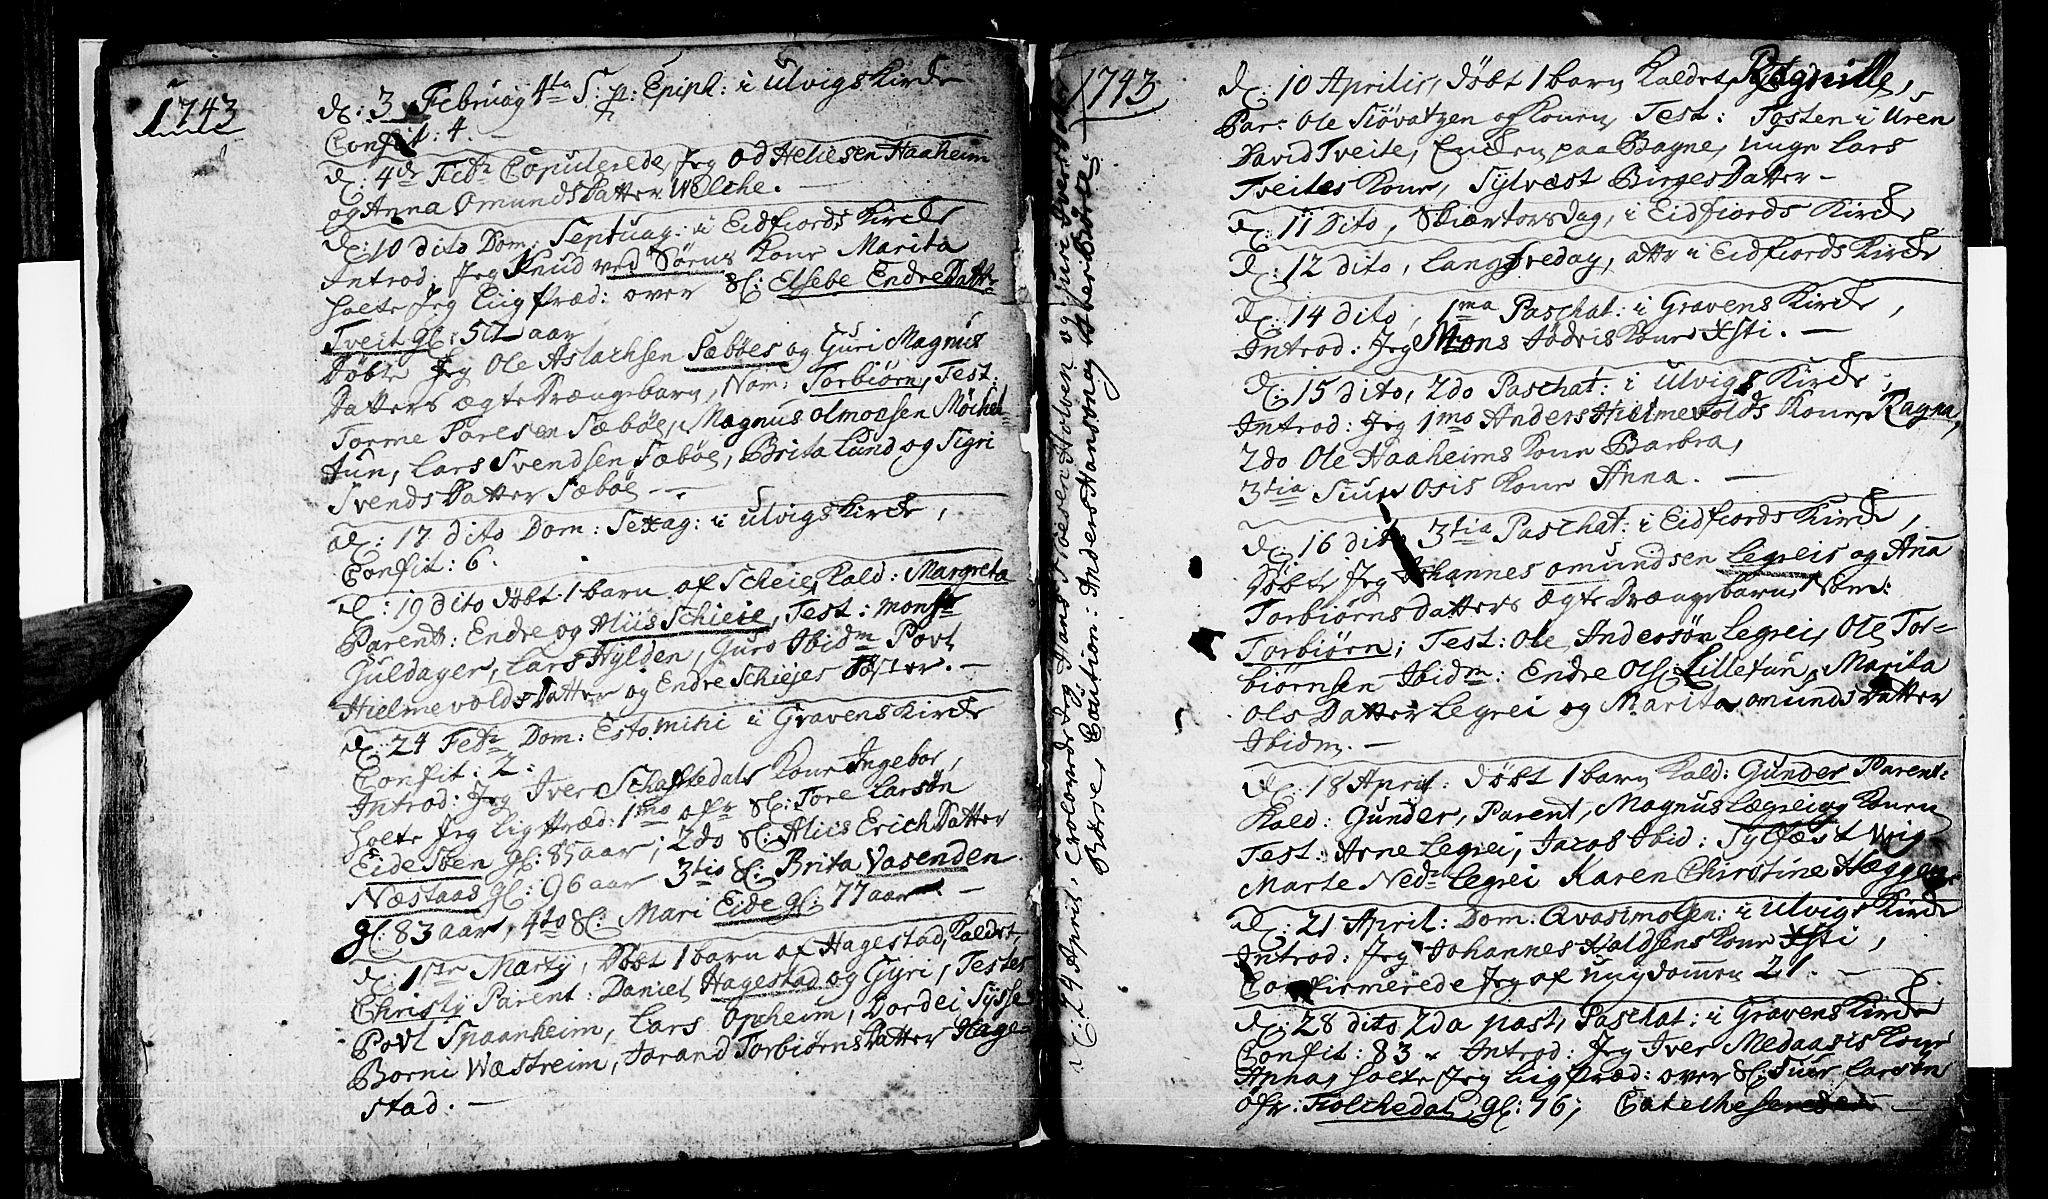 1743
d: 3 Februarij 4ta S: p: Epiph: i Ulvigs Kirche
Confit: 4.
d: 4de Febr: Copulerede Jeg Od Heliesen Haaheim
og Anna Omunds Datter Welche. —
d: 10 dito Dom: Septuag: i Eidfiords Kirche
Introd: Jeg Knud ved Sørns Kone Marita
holte Jeg Liig Præd: over Sl: Elsebe Endre Datter
Tveit gl: 52 aar
Døbte Jeg Ole Aslachsen Sæbøes og Guri Magnus
Datters ægte Drængebarn, Nom: Torbiørn, Test:
Torme Sæbøe, Magnus Olmodsen Møchel-
tun, Lars Svendsen Sæbøe, Brita Lund og Sigri
Svends Datter Sæbøe —
d: 17 dito Dom: Sexag: i Ulvigs Kirche,
Confit: 6.
d: 19 dito døbt 1 barn af Scheie, Kald: Margreta
Parent: Endre og Aliis Schieie, Test: Monsr
Guldager, Lars Hylden, Guro Ibidm Povl
Hielmevolds Datter og Endre Schiejes Søster. —
d: 24 Febr: Dom: Esto mihi i Gravens Kirche
Confit: 2:
Introd: Jeg Iver Schaftedals Kone Ingebor,
holte Jeg Lig Præd: 1mo ofr Sl: Tore Larsøn
Eide Søen gl: 85 aar; 2do Sl: Aliis Erich Datter
Næstaas gl: 96 aar 3tio Sl: Brita Vasenden
gl: 83 aar, 4to Sl: Mari Eide gl: 77 aar —
d: 1ste Martij, Døbt 1 barn af Hagestad, Kaldet,
Christj Parent: Daniel Hagestad og Gyri, Testes
Povl Spaanheim, Lars Opheim, Dordei Sysse
Borni Wæstreim, Jorand Torbiørns Datter Hage-
stad. —
1743
d: 10 Aprilis, døbt 1 barn Kaldet, Ragnille,
Par: Ole Siøvatzen og Konen, Test: Tosten i Uren
David Tveite, Enchen paa Bagne, unge Lars
Tveites Kone, Sylvæst Birges Datter —
d: 11 Dito, Skiærtorsdag, i Eidfiords Kirche
d: 12 dito, Langfredag, atter i Eidfiords Kirche
d: 14 dito, 1ma Paschat: i Gravens Kirche,
Introd: Jeg Mons Kone Xsti. —
d: 15 dito, 2do Paschat: i Ulvigs Kirche,
Introd: Jeg 1mo Anders Hielmevolds Kone, Ragna,
2do Ole Haaheims Kone Barbra,
3tia Siur Osis Kone Anna. —
d: 16 dito 3tia Paschat: i Eidfiords Kirche,
Døbte Jeg Johannes Omundsen Legreis og Ana
Torbiørnsdatters ægte Drængebarn, Nom:
Torbiørn; Test: Ole Andersøn Legrei, Ole Tor-
biørnsen Ibidm: Endre Ols: Lilletun, Marita
Ols Datter Legrei og Marita Omunds Datter
Ibidm. —
d: 18 April: døbt 1 barn Kald: Gunder Parent:
Kald: Gunder, Parent, Magnus Lægrei og Konen
Test: Arne Legrei, Jacob Ibid: Sylfæst Wiig
Marte Nedr Legrei Karen Chirstine Hæggen
d: 21 April: Dom: Qvasimo Gen: i Ulvigs Kirche
Introd: Jeg Johannes Holdsens Kone Xsti,
Confirmerede Jeg af ungdommen 21. —
d: 28 dito 2da past, Paschat: i Gravens Kirche
Confit: 83. Introd: Jeg Iver Medaasis Kone
Anna, holte Jeg Liig Præd: over Sl: Siur Larsøn
øfr: Folchedal gl: 76; Catecheserede —
d: 24 April, trolovede Jeg Hans Holven og
Børre, Caution: Anders Hansøn og